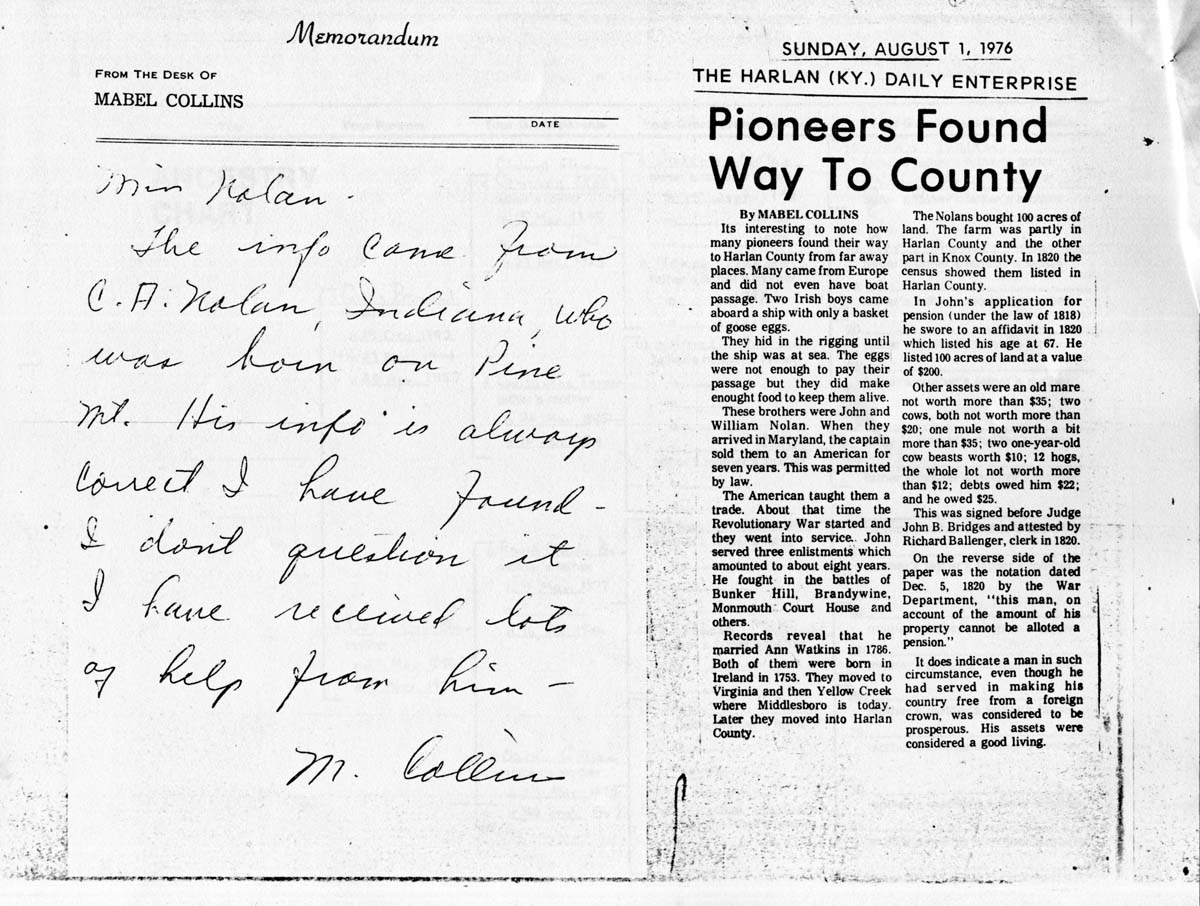 Memorandum
FROM THE DESK OF
MABEL COLLINS
DATE
Miss Nolan -
The info came from
C. A. Nolan, Indiana, who
was born on Pine
Mt. His info is always
correct I have found -
I don't question it
I have received lots
of help from him -
M. Collins
SUNDAY, AUGUST 1, 1976
THE HARLAN (KY.) DAILY ENTERPRISE
Pioneers Found
Way To County
By MABEL COLLINS
Its interesting to note how
many pioneers found their way
to Harlan County from far away
places. Many came from Europe
and did not even have boat
passage. Two Irish boys came
aboard a ship with only a basket
of goose eggs.
They hid in the rigging until
the ship was at sea. The eggs
were not enough to pay their
passage but they did make
enought food to keep them alive.
These brothers were John and
William Nolan. When they
arrived in Maryland, the captain
sold them to an American for
seven years. This was permitted
by law.
The American taught them a
trade. About that time the
Revolutionary War started and
they went into service. John
served three enlistments which
amounted to about eight years.
He fought in the battles of
Bunker Hill, Brandywine,
Monmouth Court House and
others.
Records reveal that he
married Ann Watkins in 1786.
Both of them were born in
Ireland in 1753. They moved to
Virginia and then Yellow Creek
where Middlesboro is today.
Later they moved into Harlan
County.
The Nolans bought 100 acres of
land. The farm was partly in
Harlan County and the other
part in Knox County. In 1820 the
census showed them listed in
Harlan County.
In John's application for
pension (under the law of 1818)
he swore to an affidavit in 1820
which listed his age at 67. He
listed 100 acres of land at a value
of $200.
Other assets were an old mare
not worth more than $35; two
cows, both not worth more than
$20; one mule not worth a bit
more than $35; two one-year-old
cow beasts worth $10; 12 hogs,
the whole lot not worth more
than $12; debts owed him $22;
and he owed $25.
This was signed before Judge
John B. Bridges and attested by
Richard Ballenger, clerk in 1820.
On the reverse side of the
paper was the notation dated
Dec. 5, 1820 by the War
Department, "this man, on
account of the amount of his
property cannot be alloted a
pension."
It does indicate a man in such
circumstance, even though he
had served in making his
country free from a foreign
crown, was considered to be
prosperous. His assets were
considered a good living.